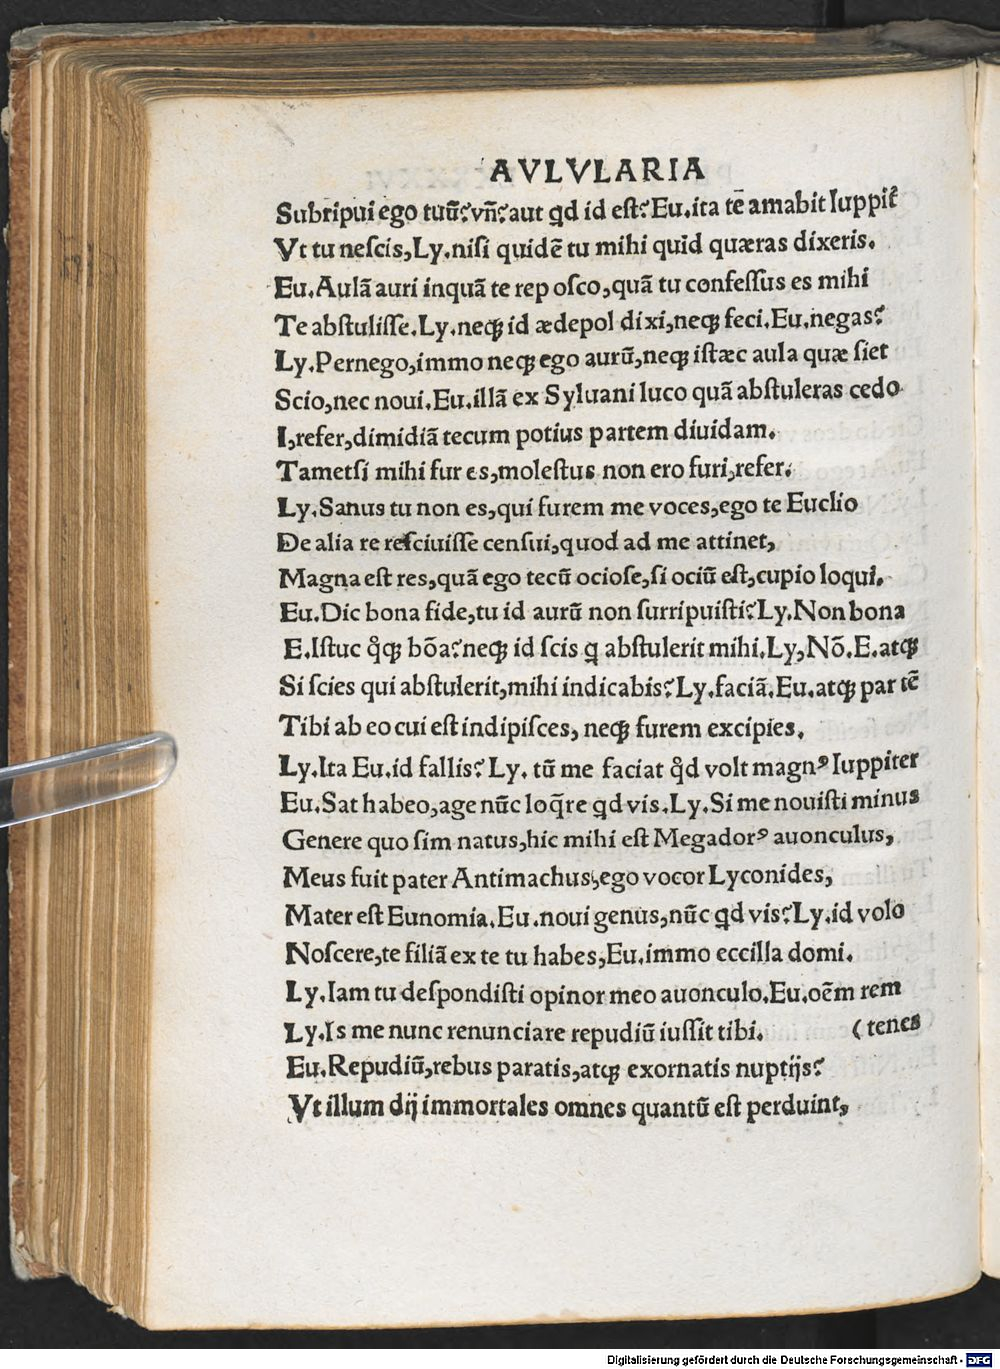 AVLVLARIA
Subripui ego tuū?vn̄?aut qd id est?Eu.ita tē amabit Iuppit̄
Vt tu nescis,Ly.nisi quidē tu mihi quid quæras dixeris.
Eu.Aulā auri inquā te reposco,quā tu confessus es mihi
Te abstulisse.Ly.neqꝫ id ædepol dixi,neqꝫ feci.Eu.negas?
Ly.Pernego,immo neqꝫ ego aurū,neqꝫ istæc aula quæ siet
Scio,nec noui.Eu.illā ex Syluani luco quā abstuleras cedo
I,refer,dimidiā tecum potius partem diuidam.
Tametsi mihi fur es,molestus non ero furi,refer.
Ly.Sanus tu non es,qui furem me voces,ego te Euclio
De alia re resciuisse censui,quod ad me attinet,
Magna est res,quā ego tecū ociose,si ociū est,cupio loqui.
Eu.Dic bona fide,tu id aurū non surripuisti?Ly.Non bona
E.Istuc qͦqꝫ bōa?neqꝫ id scis q abstulerit mihi.Ly,Nō.E.atqꝫ
Si scies qui abstulerit,mihi indicabis?Ly.faciā.Eu.atqꝫ partē
Tibi ab eo cui est indipisces, neqꝫ furem excipies.
Ly.Ita Eu.id fallis? Ly. tū me faciat qͦd volt magnꝰ Iuppiter
Eu.Sat habeo,age nūc loq̄re qd vis.Ly.Si me nouisti minus
Genere quo sim natus,hic mihi est Megadorꝰ auonculus,
Meus fuit pater Antimachus,ego vocor Lyconides,
Mater est Eunomia.Eu.noui genus,nūc qd vis?Ly.id volo
Noscere,te filiā ex te tu habes,Eu.immo eccilla domi.
Ly.Iam tu despondisti opinor meo auonculo.Eu.oēm rem
Ly.Is me nunc renunciare repudiū iussit tibi. (tenes
Eu.Repudiū,rebus paratis,atqꝫ exornatis nuptijs?
Vt illum dij immortales omnes quantū est perduint,
Digitalisierung gefördert durch die Deutsche Forschungsgemeinschaft - DFG